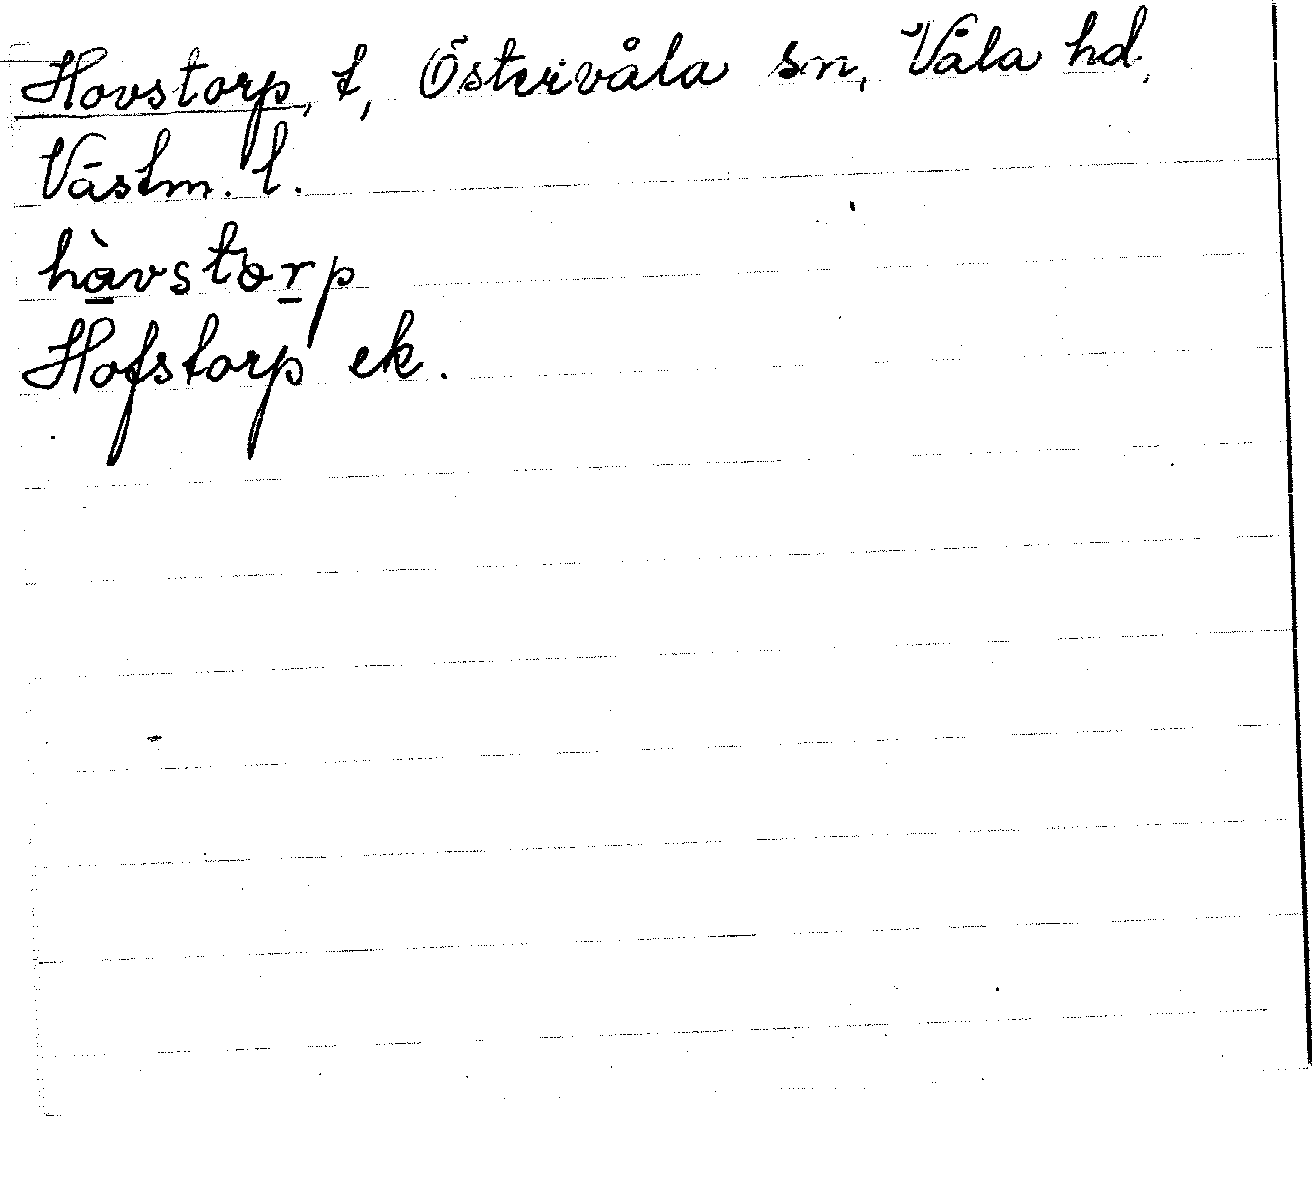 Hovstorp, t, Östervåla sn, Våla hd,
Västm. l.
hàvstorp
Hofstorp ek.